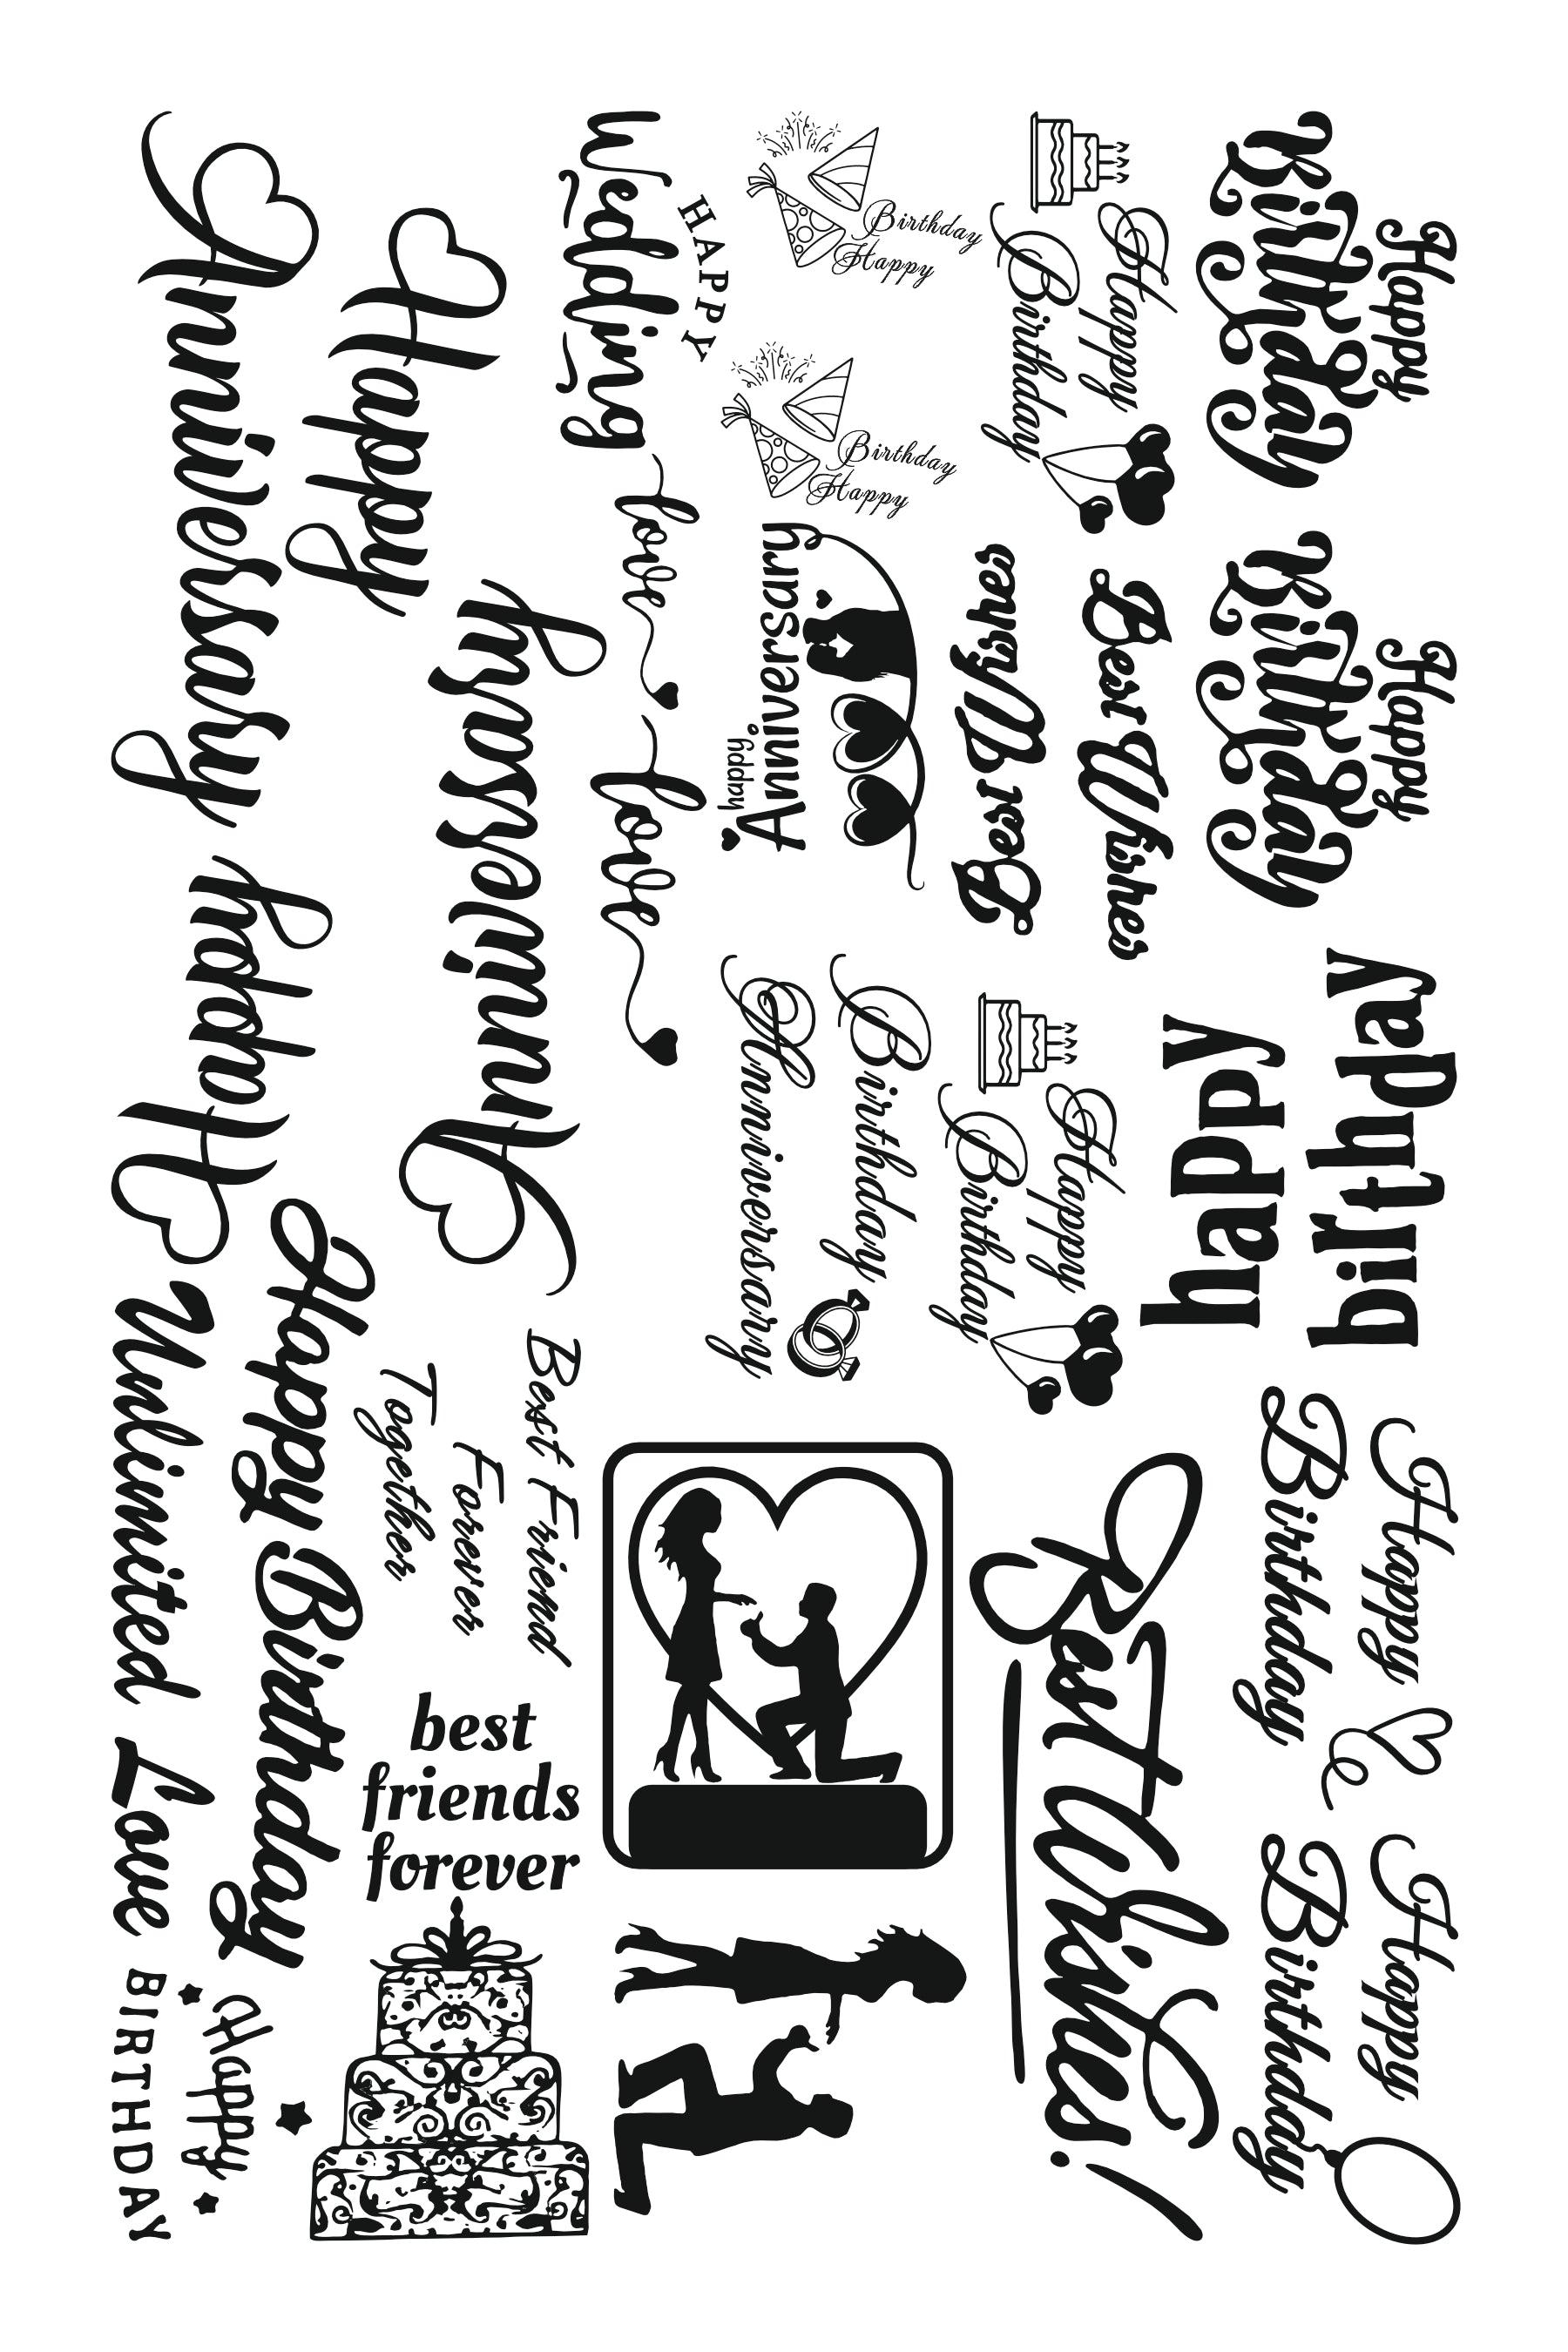 Happy
Anniversary
Happy
Anniversary
HAPPY
Wedding
Love
Love
Birthday
Happy
Birthday
Happy
Happy
Birthday
Happy
Birthday
Happy
Birthday
happy
Anniversary
Best Wishes
Best Wishes
Birthday
Anniversary
Happy
Birthday
happy
birthday
Happy
Birthday
Happy
Birthday
Best Wishes!
Best Friend
Forever
Together
best
friends
forever
Happy Birthday
Unlimited Love
Happy
BIRTHDAY